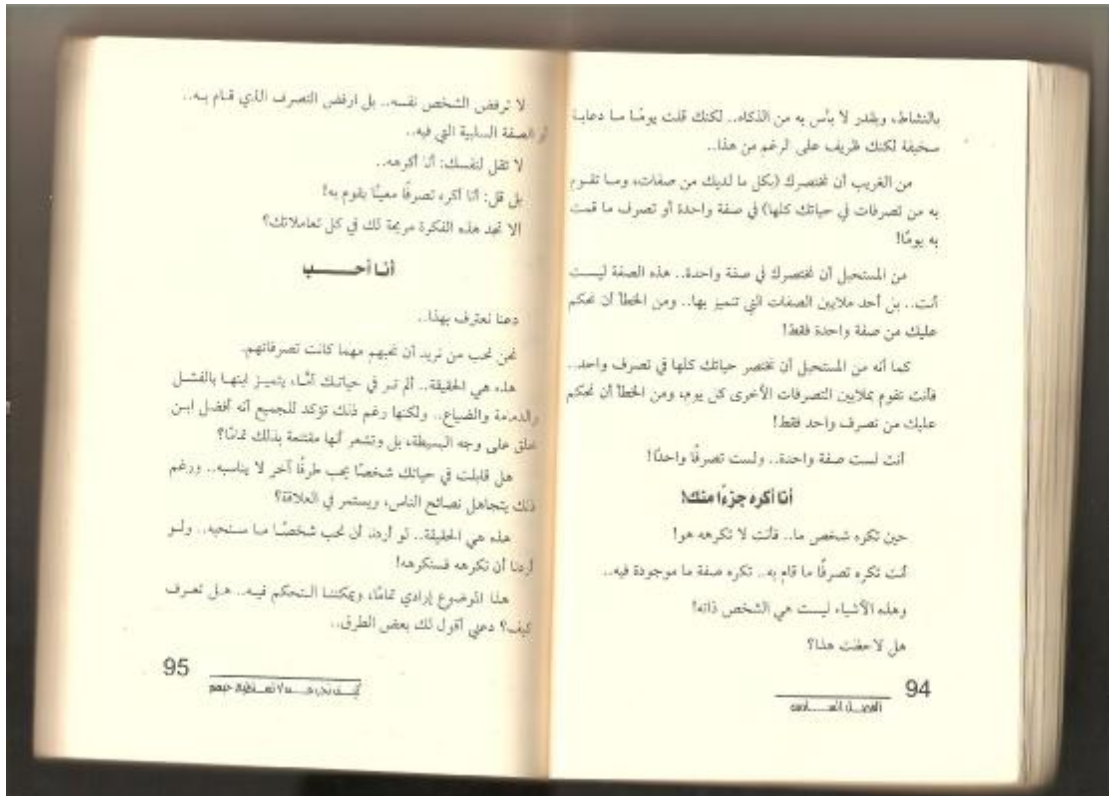 بالنشاط، وبقدر لا بأس به من الذكاء.. لكنك قلت يومًا ما دعابة
سخيفة لكنك ظريف على الرغم من هذا..
من الغريب أن نختصرك (بكل ما لديك من صفات، وما تقوم
به من تصرفات في حياتك كلها) في صفة واحدة أو تصرف ما قمت
به يومًا!
من المستحيل أن نختصرك في صفة واحدة.. هذه الصفة ليست
أنت.. بل أحد ملايين الصفات التي تتميز بها.. ومن الخطأ أن نحكم
عليك من صفة واحدة فقط!
كما أنه من المستحيل أن نختصر حياتك كلها في تصرف واحد..
فأنت تقوم بملايين التصرفات الأخرى كل يوم، ومن الخطأ أن نحكم
عليك من تصرف واحد فقط!
أنت لست صفة واحدة.. ولست تصرفًا واحدًا!
أنا أكره جزءًا منك!
حين تكره شخص ما.. فأنت لا تكرهه هو!
أنت تكره تصرفًا ما قام به.. تكره صفة ما موجودة فيه..
وهذه الأشياء ليست هي الشخص ذاته!
هل لاحظت هذا؟
94
الفصل السادس
لا ترفض الشخص نفسه.. بل ارفض التصرف الذي قام به..
أو الصفة السلبية التي فيه..
لا تقل لنفسك: أنا أكرهه..
بل قل: أنا أكره تصرفًا معينًا يقوم به!
ألا تجد هذه الفكرة مريحة لك في كل تعاملاتك؟
أنا أحـــب
دعنا نعترف بهذا..
نحن نحب من نريد أن نحبهم مهما كانت تصرفاتهم.
هذه هي الحقيقة.. ألم تر في حياتك أمًّا، يتميز ابنها بالفشل
والدمامة والضياع.. ولكنها رغم ذلك تؤكد للجميع أنه أفضل ابن
خلق على وجه البسيطة، بل وتشعر أنها مقتنعة بذلك تمامًا؟
هل قابلت في حياتك شخصًا يحب طرفًا آخر لا يناسبه.. ورغم
ذلك يتجاهل نصائح الناس، ويستمر في العلاقة؟
هذه هي الحقيقة.. لو أردنا أن نحب شخصًا ما سنحبه.. ولو
أردنا أن نكرهه فسنكرهه!
هذا الموضوع إرادي تمامًا، ويمكننا التحكم فيه.. هل تعرف
كيف؟ دعني أقول لك بعض الطرق..
95
كيف تحب من لا تستطيع حبهم